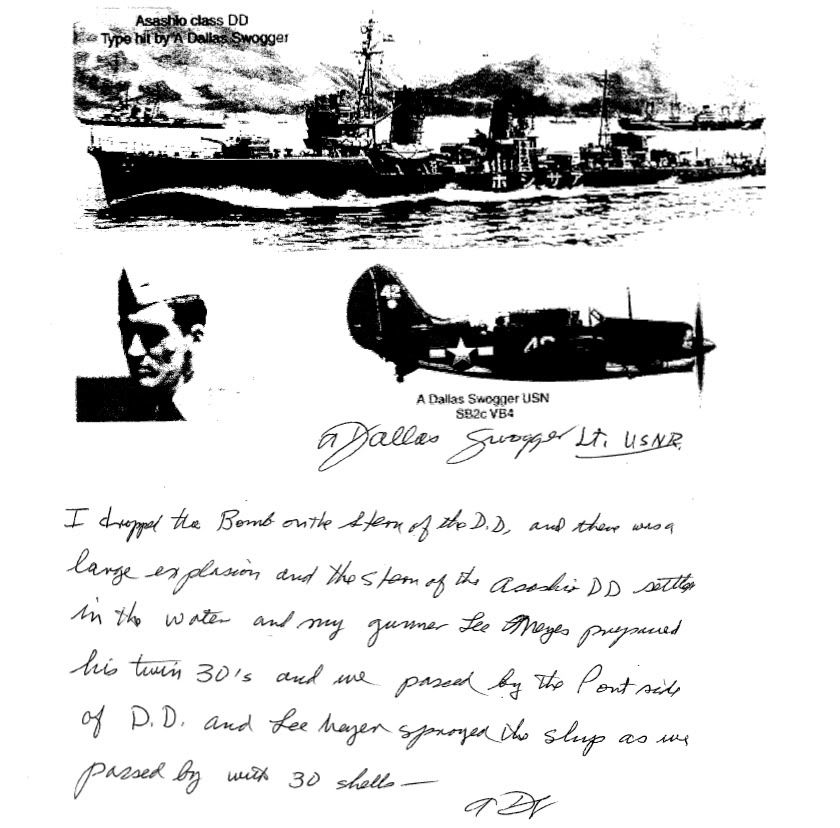 Asashio class DD
Type hit by A Dallas Swogger
ホシサア
42
A Dallas Swogger USN
SB2c VB4
A Dallas Swogger Lt. USNR.
I dropped the Bomb on the Stern of the D.D, and there was a
large explosion and the Stern of the Asashio DD settled
in the water and my gunner Lee Meyer prepared
his twin 30's and we passed by the Port side
of D.D. and Lee Meyer sprayed the ship as we
passed by with 30 shells —